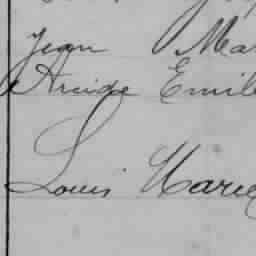 Jean Mar
Emile
Louis Marie